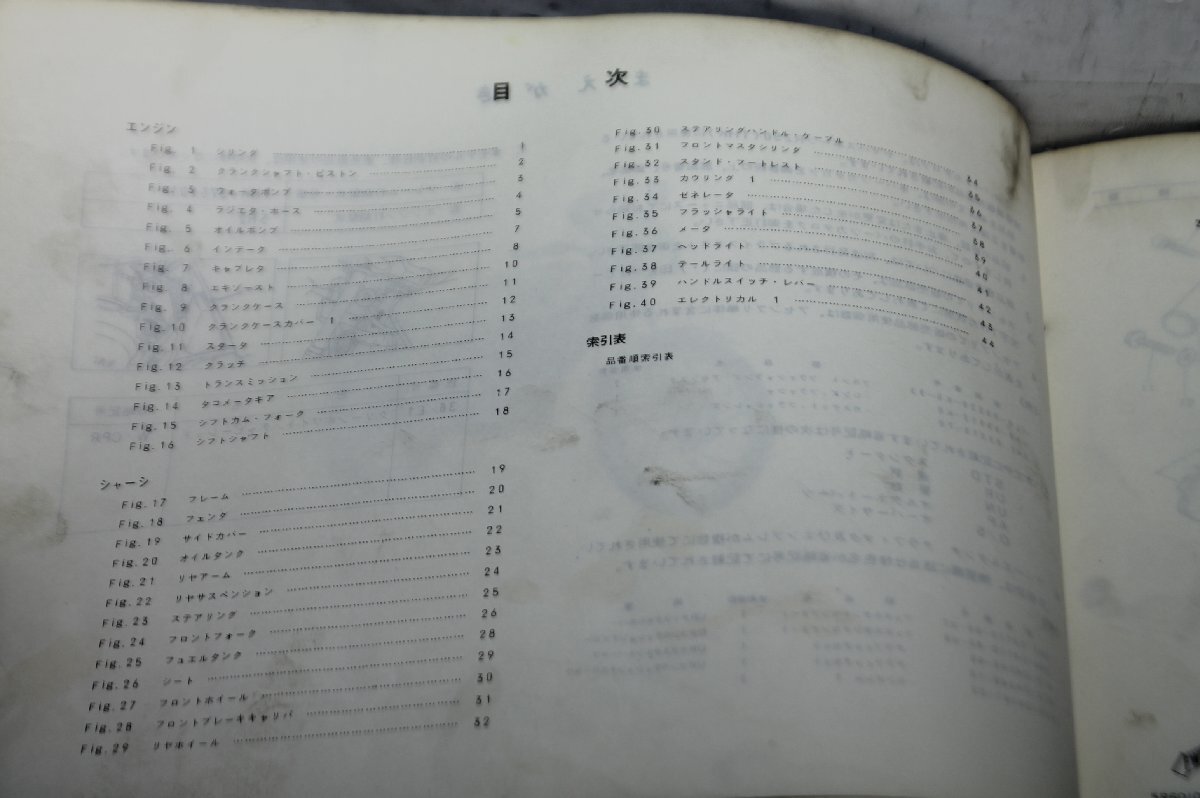 目次
エンジン
Fig. 1 シリンダ 1
Fig. 2 クランクシャフト・ピストン 2
Fig. 3 ウォータポンプ 3
Fig. 4 ラジエタ・ホース 4
Fig. 5 オイルポンプ 5
Fig. 6 インテーク 7
Fig. 7 キャブレタ 8
Fig. 8 エキゾースト 10
Fig. 9 クランクケース 11
Fig. 10 クランクケースカバー 1 12
Fig. 11 スタータ 13
Fig. 12 クラッチ 14
Fig. 13 トランスミッション 15
Fig. 14 タコメータギア 16
Fig. 15 シフトカム・フォーク 17
Fig. 16 シフトシャフト 18
シャーシ
Fig. 17 フレーム 19
Fig. 18 フェンダ 20
Fig. 19 サイドカバー 21
Fig. 20 オイルタンク 22
Fig. 21 リヤアーム 23
Fig. 22 リヤサスペンション 24
Fig. 23 ステアリング 25
Fig. 24 フロントフォーク 26
Fig. 25 フュエルタンク 28
Fig. 26 シート 29
Fig. 27 フロントホイール 30
Fig. 28 フロントブレーキキャリパ 31
Fig. 29 リヤホイール 32
Fig. 30 ステアリングハンドル・ケーブル 34
Fig. 31 フロントマスタシリンダ 35
Fig. 32 スタンド・フートレスト 36
Fig. 33 カウリング 1 37
Fig. 34 ゼネレータ 38
Fig. 35 フラッシャライト 39
Fig. 36 メータ 40
Fig. 37 ヘッドライト 41
Fig. 38 テールライト 42
Fig. 39 ハンドルスイッチ・レバー 43
Fig. 40 エレクトリカル 1 44
索引表
品番順索引表